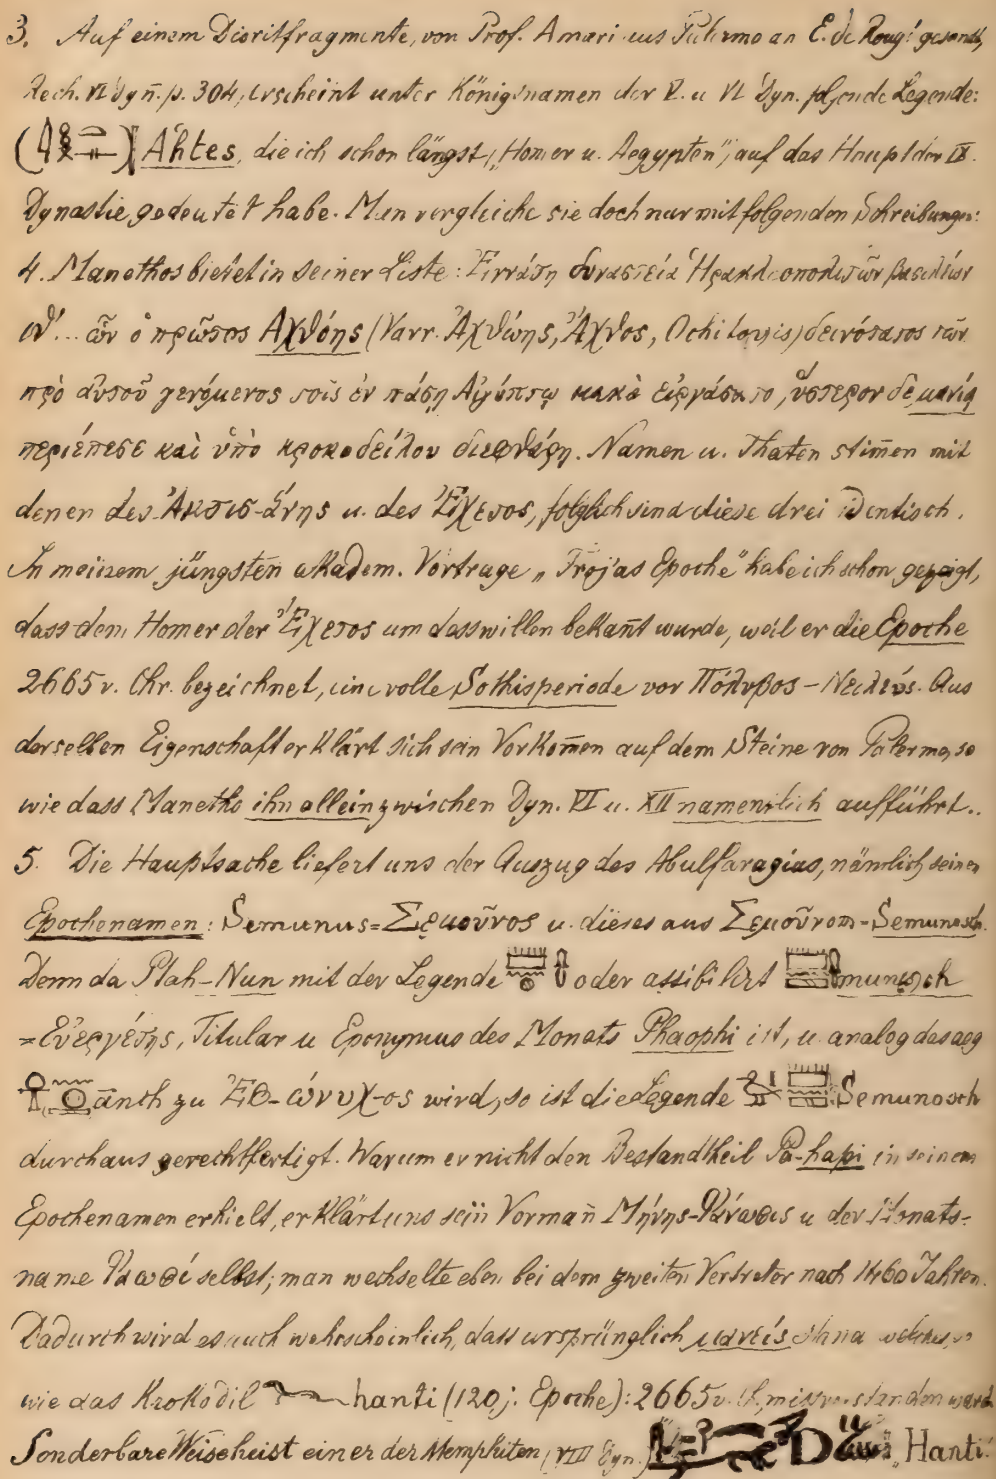 3. Auf einem Dioritfragmente, von Prof. Amari aus Palermo an E. de Rougé gesandt,
Rech. VI Dyn. p. 304, erscheint unter Königsnamen der V. u VI Dyn. folgende Legende:
Ahtes, die ich schon längst, „Homer u. Aegypten", auf das Haupt der IX.
Dynastie gedeutet habe. Man vergleiche sie doch nur mit folgenden Schreibungen:
4. Manethos bietet in seiner Liste: Ἐννάτη δυναστεία Ἡρακλεοπολιτῶν βασιλέων
ιθ'... ὧν ὁ πρῶτος Ἀχθόης (Varr. Ἀχθώης, Ἄχθος, Ochitois) δεινότατος τῶν
πρὸ αὐτοῦ γενόμενος τοῖς ἐν πάσῃ Αἰγύπτῳ κακὰ εἰργάσατο, ὕστερον δὲ μανίᾳ
περιέπεσε καὶ ὑπὸ κροκοδείλου διεφθάρη. Namen u. Thaten stim̄en mit
denen des Ἄκτισ-άνης u. des Ἔχετος, folglich sind diese drei identisch.
In meinem jüngsten akadem. Vortrage „Trojas Epoche" habe ich schon gezeigt,
dass dem Homer der Ἔχετος um desswillen bekañt wurde, weil er die Epoche
2665 v. Chr. bezeichnet, eine volle Sothisperiode vor Πόλυβος – Νειλεύς. Aus
derselben Eigenschaft erklärt sich sein Vorkom̄en auf dem Steine von Palermo, so
wie dass Manetho ihn allein zwischen Dyn. VI u. XII namentlich aufführt..
5. Die Hauptsache liefert uns der Auszug des Abulfaragius, nämlich seinen
Epochenamen: Semunus= Σεμοῦνος u. dieses aus Σεμοῦνοσ - Semunosch.
Denn da Ptah-Nun mit der Legende oder assibilirt munosch
=Εὐεργέτης, Titular u Eponymus des Monats Phaophi ist, u. analog das aeg
ānch zu ἘΘ-ώνυχ-ος wird, so ist die Legende Semunosch
durchaus gerechtfertigt. Warum er nicht den Bestandtheil Pa-hapi in seinem
Epochenamen erhielt, erklärt uns sein Vormañ Μήνης- u der Monats-
name selbst; man wechselte eben bei dem zweiten Vertreter nach 1460 Jahren.
Dadurch wird es auch wahrscheinlich, dass ursprünglich
wie das Krokodil hanti (120 j. Epoche): 2665 v. Ch. missverstanden ward.
Sonderbare Weise heist einer der Memphiten (VIII Dyn.) „Hanti"